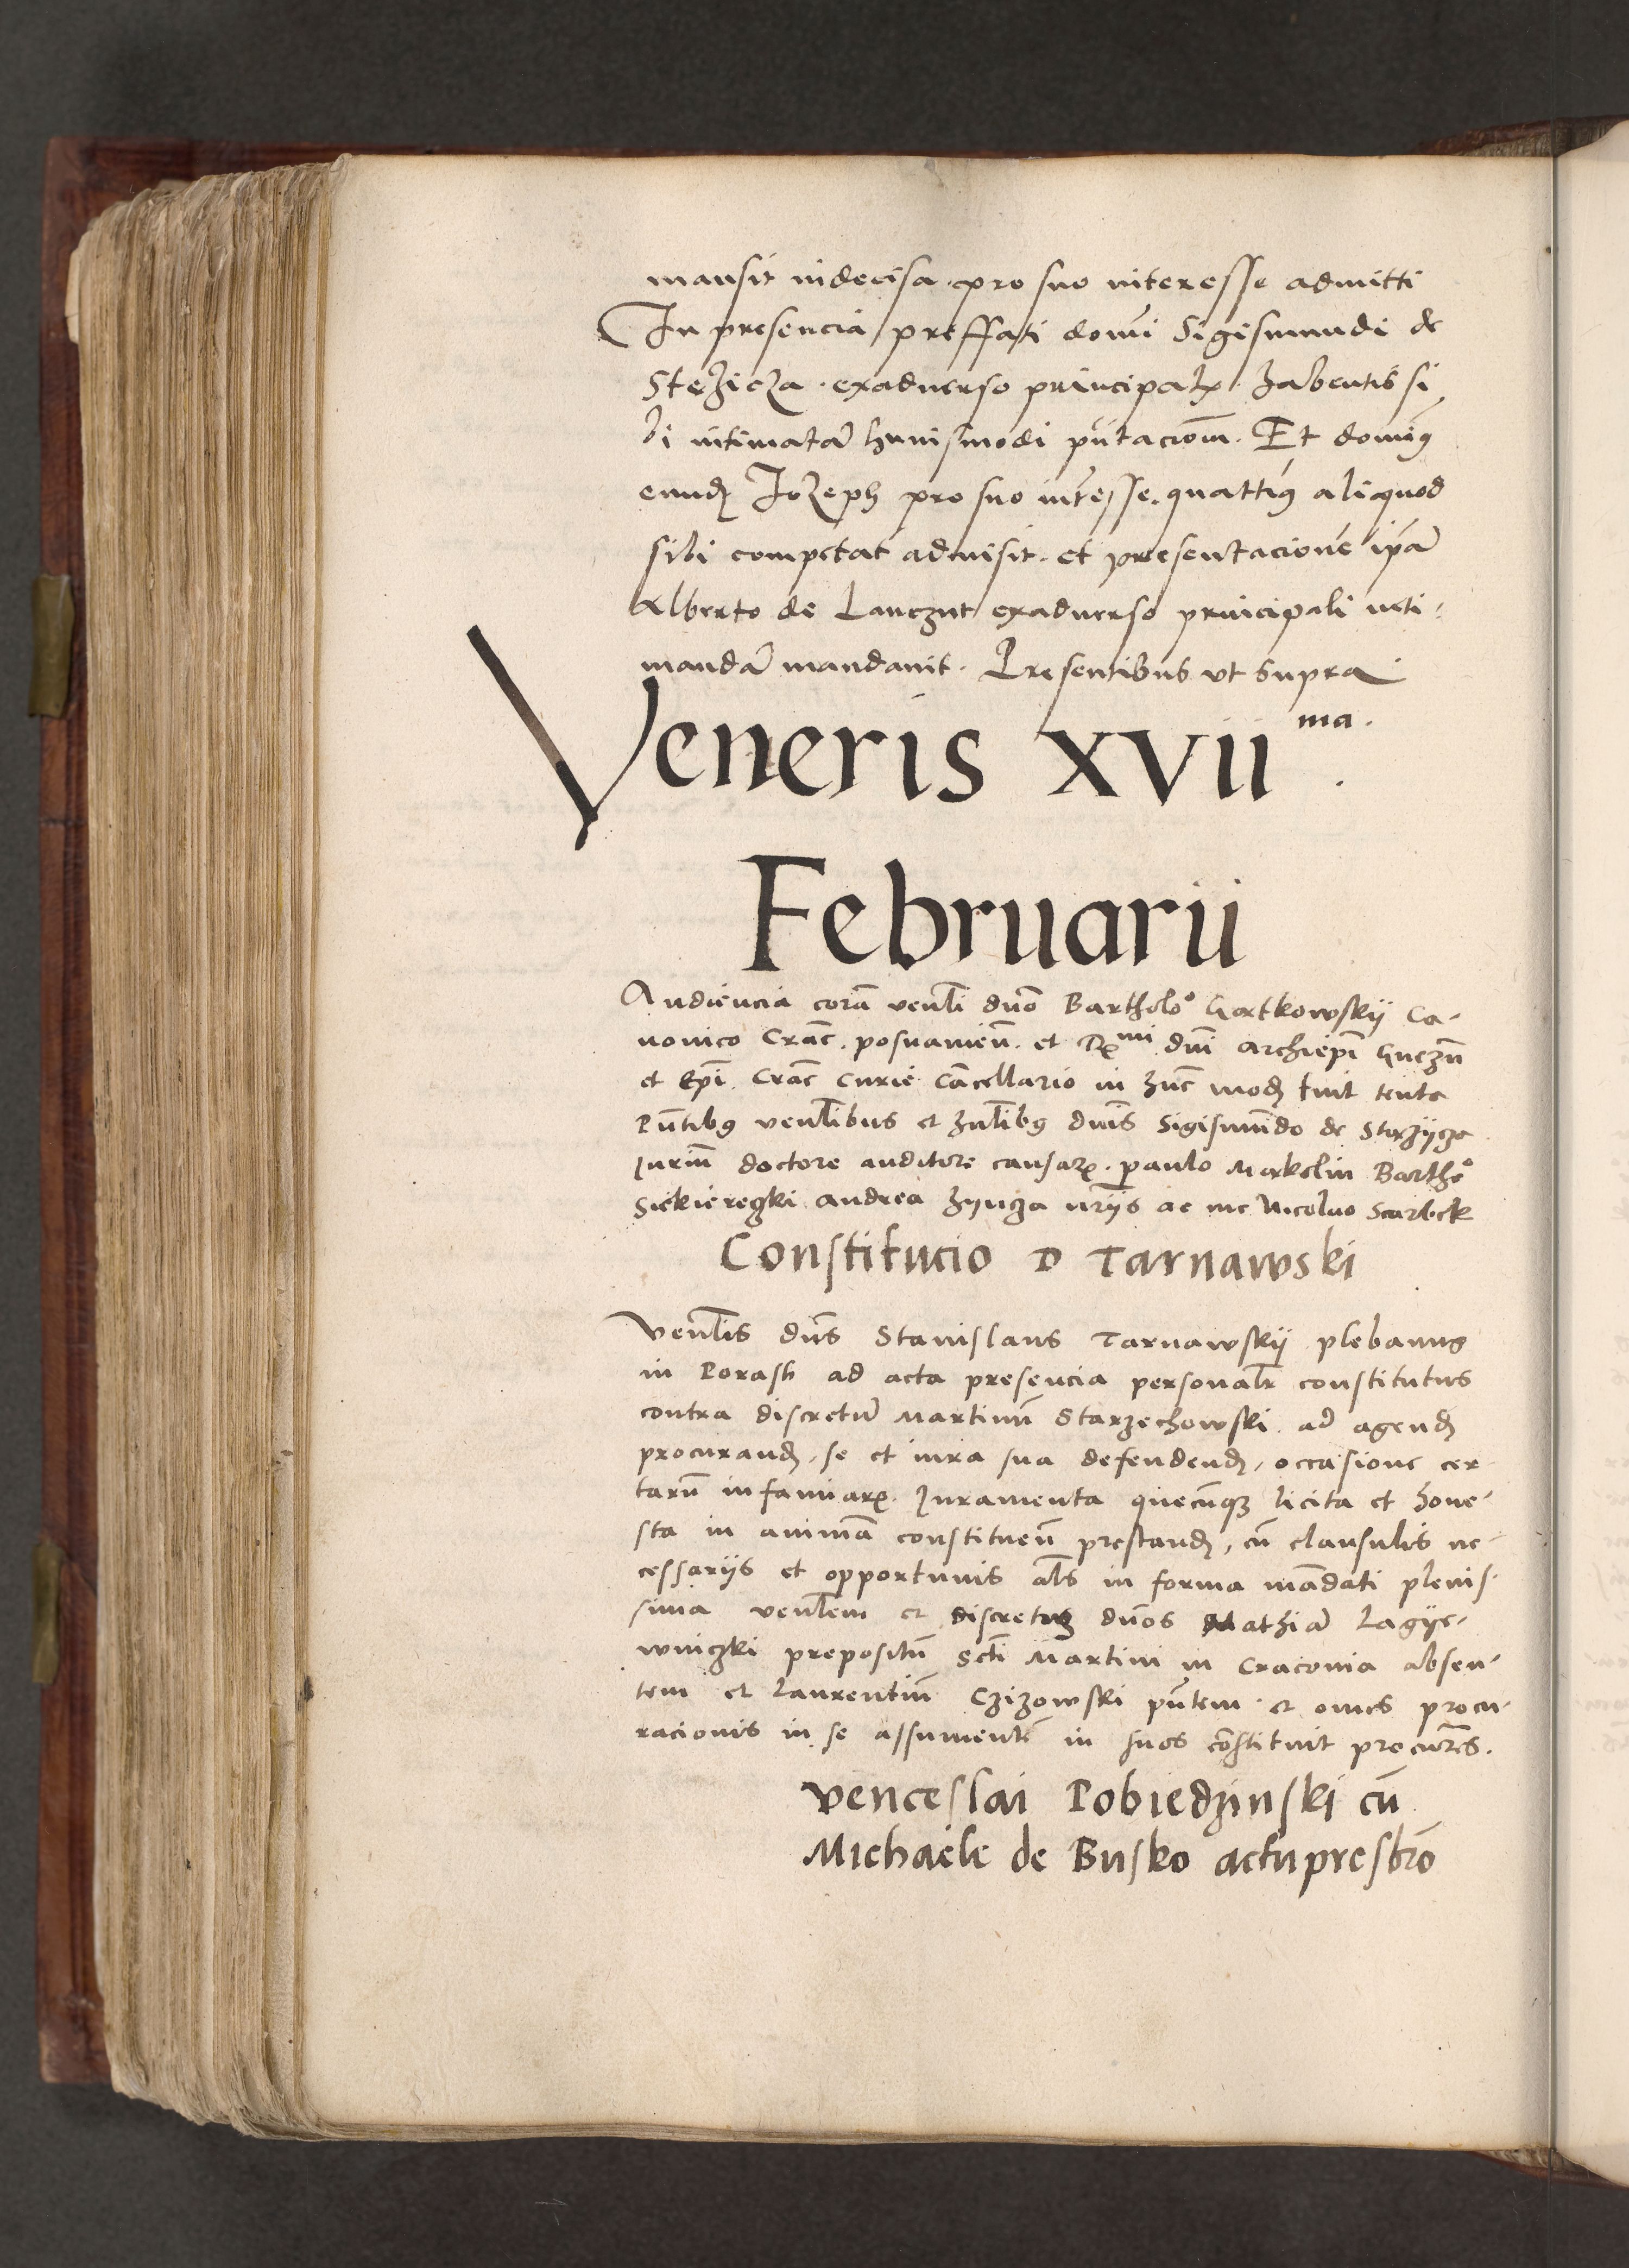 mansit indecisa pro suo interesse admitti
In presencia preffati domi Sigismundi de
Stezicza exaduerso principalis habentis si
bi intimatam huiusmodi pñtacionem. Et dominus
eundem Jozeph pro suo interesse quattinus aliquod
sibi competat admisit. et presentacione ipam
Alberto de Lanczut exaduerso principali inti-
mandam mandauit. Presentibus vt supra
Veneris xvii ma.
Februarii
Audiencia coram venli dno Bartholo Gatkowskij Ca-
nonico Crac. posnanien. et Rmi dni Archiepi Gneznen
et Epi. Crac Curie Cancellario in hunc modum fuit tenta
Pntibus venlibus et dnis Sigismundo de Starzycza
Iurium doctore auditore causarum. paulo Bartho
Siekieregki Andrea nrijs ac me Nicolao Scarbek
Constitucio D Tarnawski
Venlis dns Stanislaus Tarnawskij plebanus
in Porash ad acta presencia personalr constitutus
contra discretum Martinum Starzechowski. ad agend
procurand, se et iura sua defendend, occasione cer
tarum infamiarum. Iuramenta quecunque licita et hone-
sta in animam constituen prestand, cum clausulis ne-
cessarijs et opportunis als in forma mandati plenis-
sima venlem et discretum dnos Mathiam Lagye-
wniczki prepositum Scti Martini in Cracouia absen-
tem et Laurentium Czizowski pntem et omes procu-
racionis in se assumentem in suos constituit procures.
Venceslai Pobiedzinski cum
Michaele de Busko actu presbro